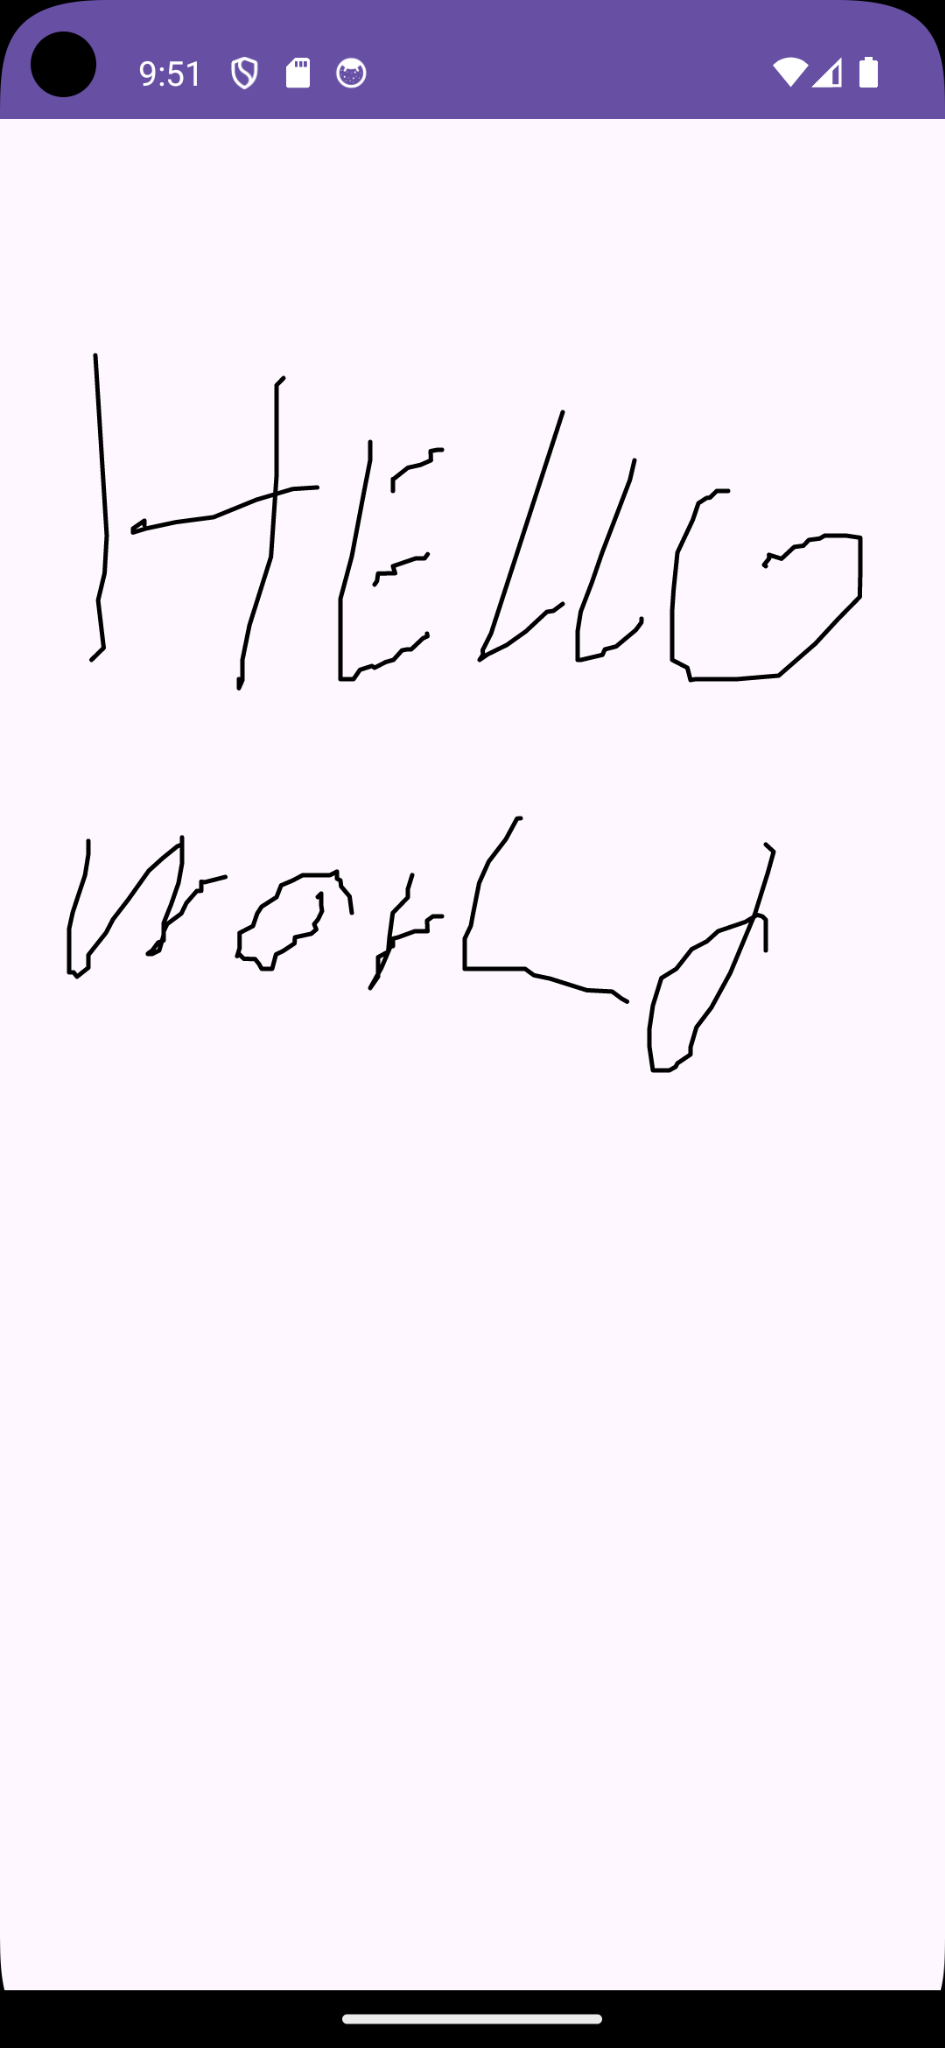 9:51
HELLO
WorLd